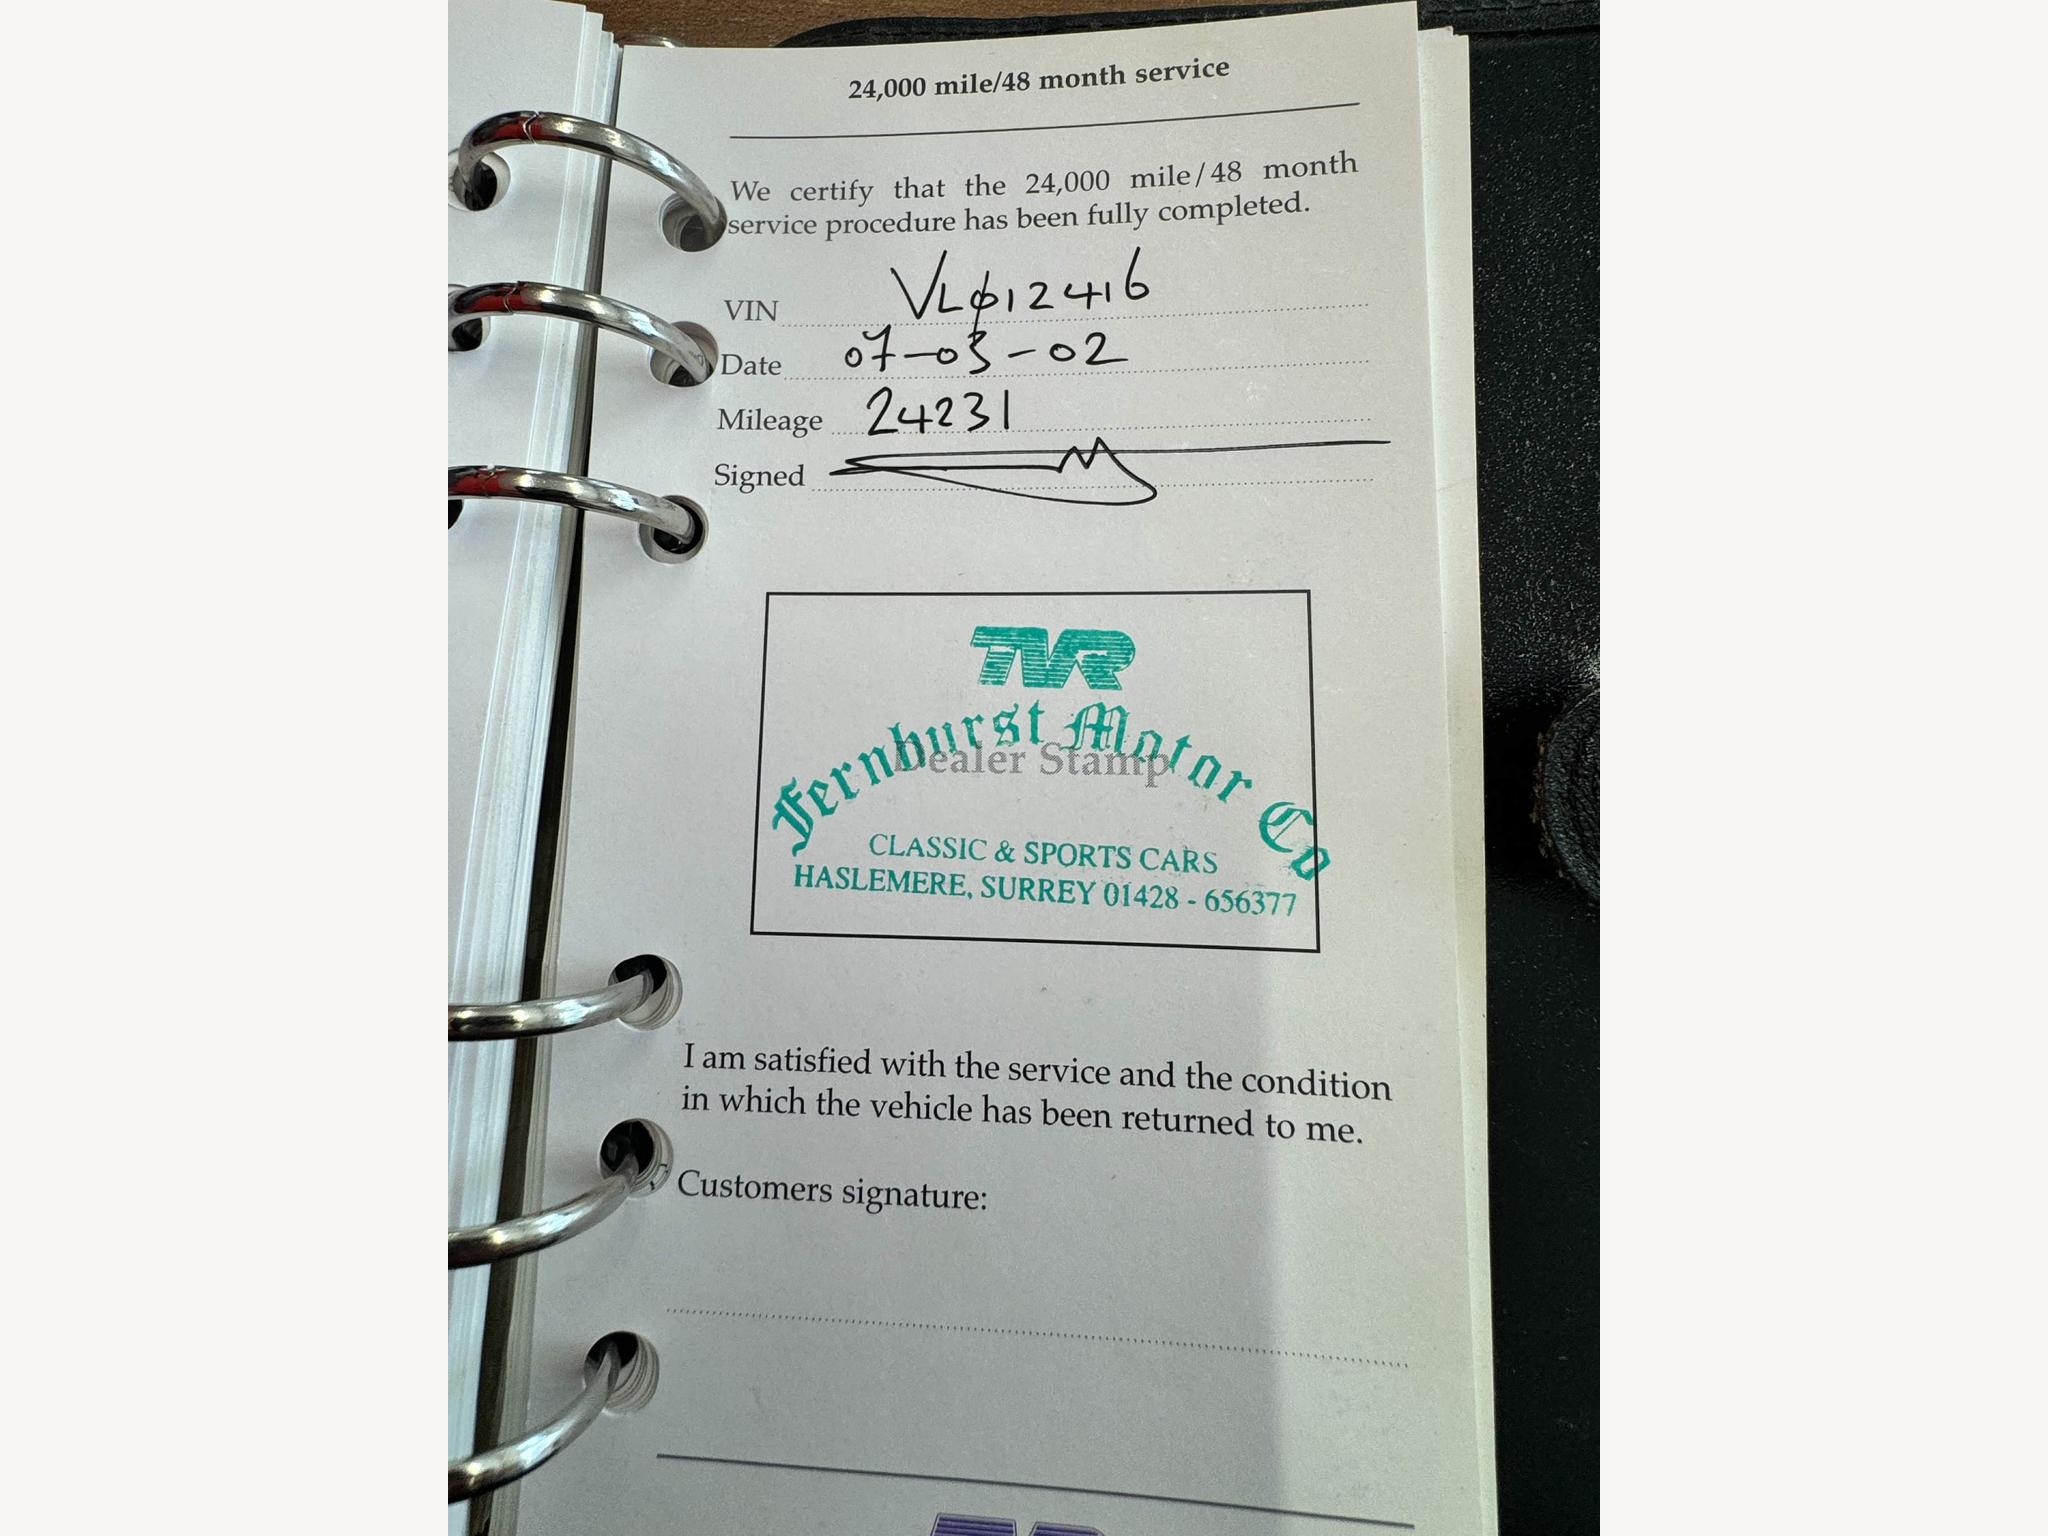 24,000 mile/48 month service
We certify that the 24,000 mile/48 month
service procedure has been fully completed.
VIN VL012416
Date 07-03-02
Mileage 24231
Signed
TVR
Fernhurst Motor Co
Dealer Stamp
CLASSIC & SPORTS CARS
HASLEMERE, SURREY 01428 - 656377
I am satisfied with the service and the condition
in which the vehicle has been returned to me.
Customers signature: